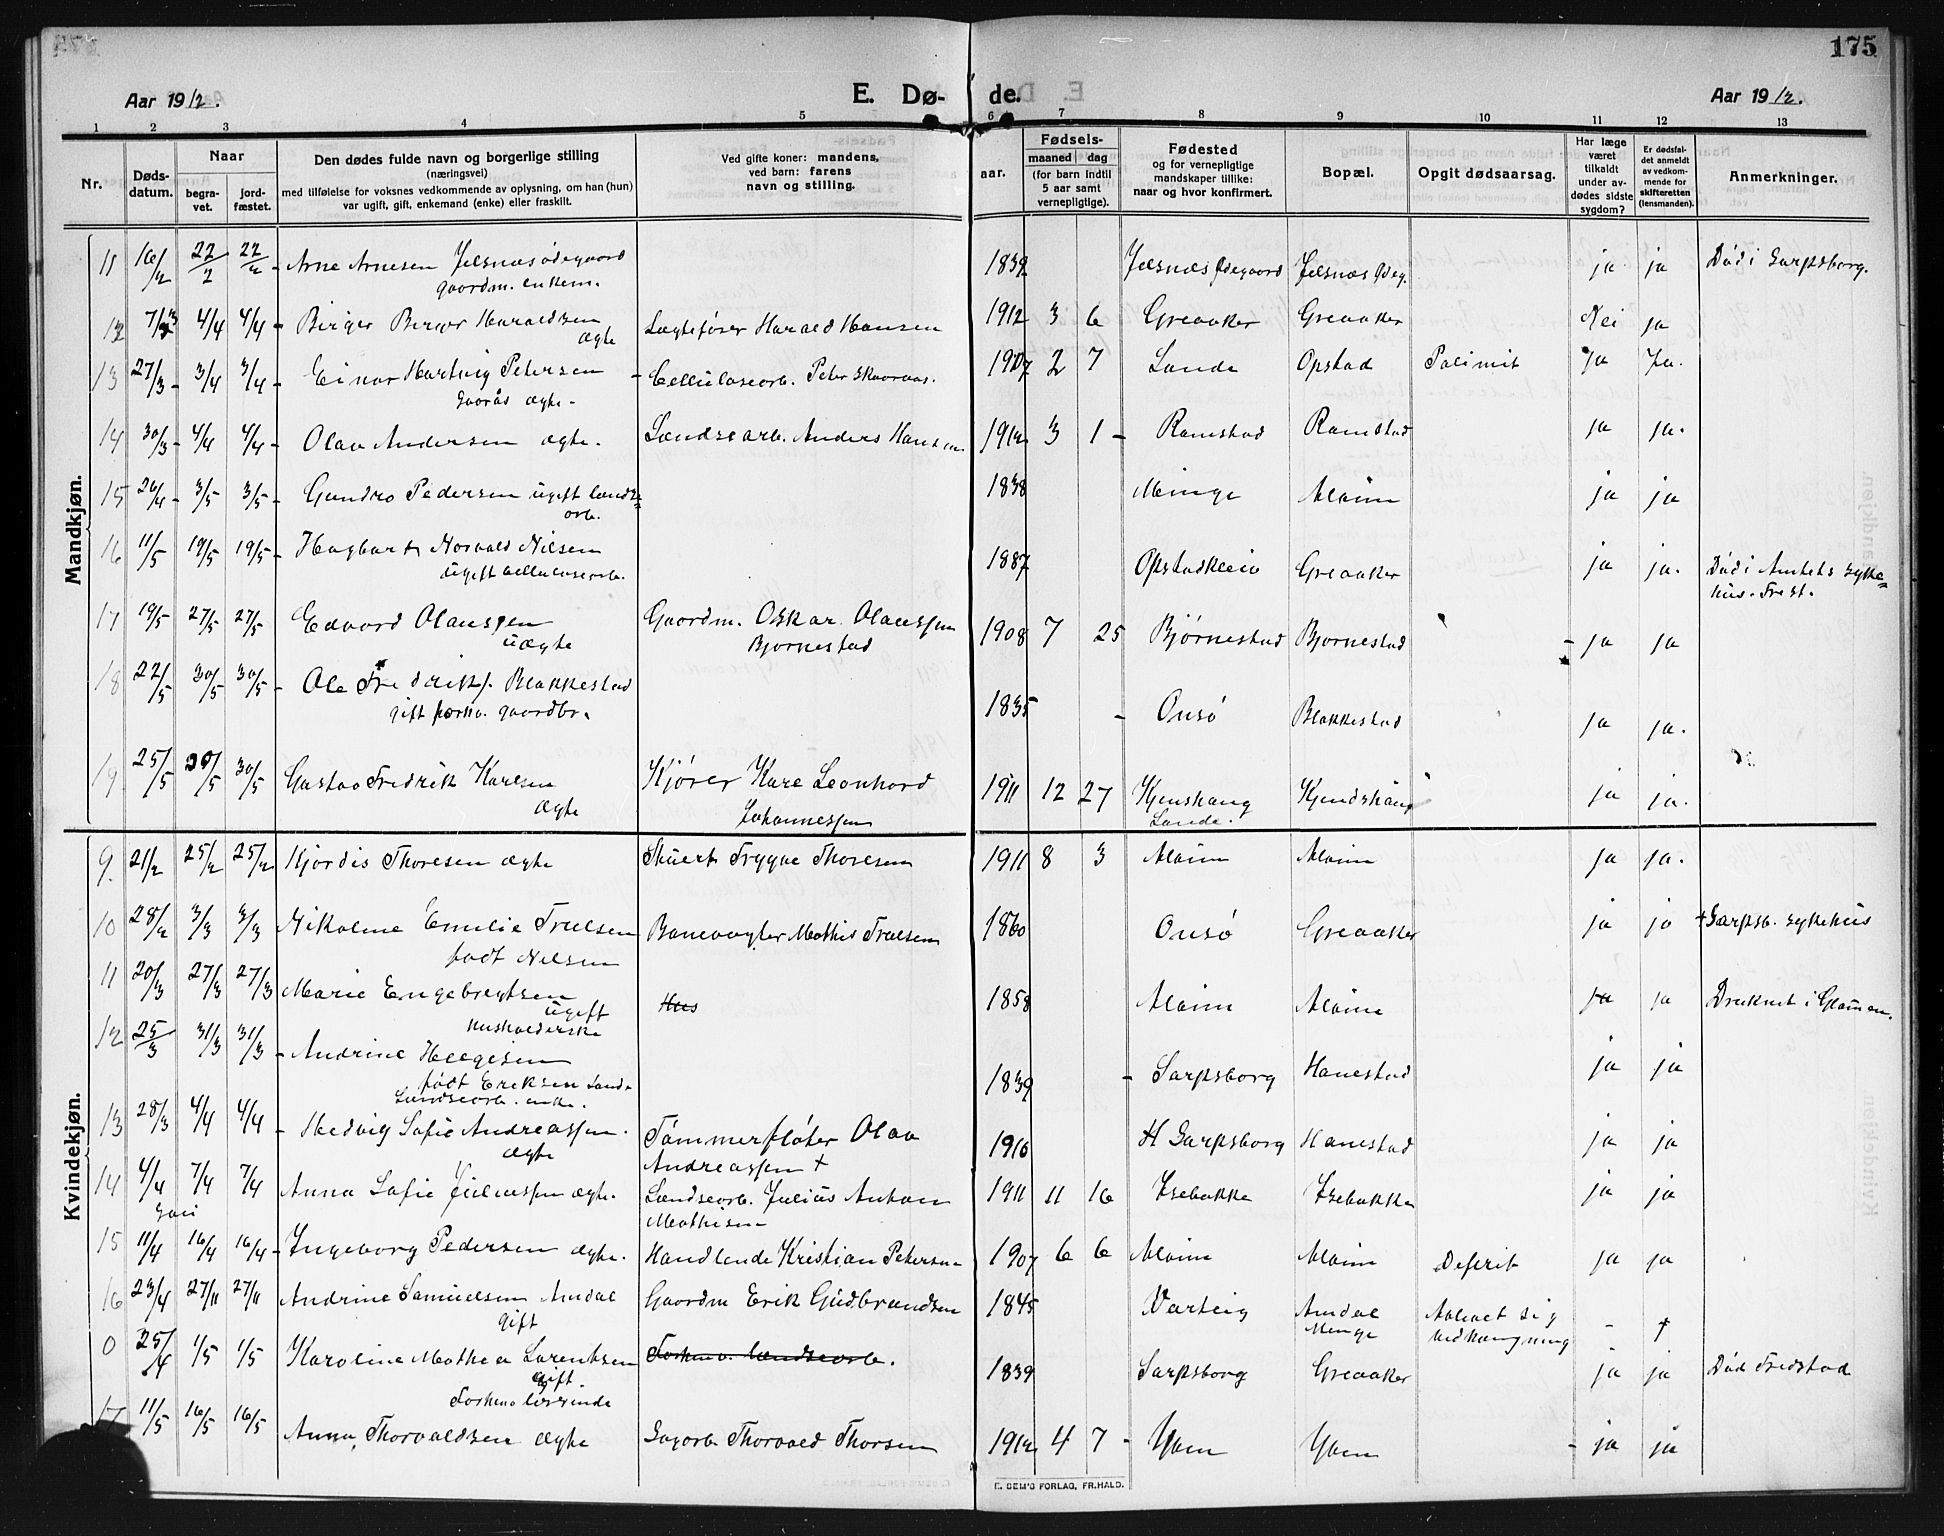 175
Aar 1912.
E. Dø- de.
Aar 1912.
1 2 3 4 5 6 7 8 9 10 11 12 13
Nr. Døds-datum. Naar begra-vet. jord-fæstet. Den dødes fulde navn og borgerlige stilling (næringsvei) med tilføielse for voksnes vedkommende av oplysning, om han (hun) var ugift, gift, enkemand (enke) eller fraskilt. Ved gifte koner: mandens, ved barn: farens navn og stilling. aar. Fødsels- maaned dag (for barn indtil 5 aar samt vernepligtige). Fødested og for vernepligtige mandskaper tillike: naar og hvor konfirmert. Bopæl. Opgit dødsaarsag. Har læge været tilkaldt under av-dødes sidste sygdom? Er dødsfal-det anmeldt av vedkom-mende for skifteretten (lensmanden). Anmerkninger.
Mandkjøn.
11 16/2 22/2 22/2 - Arne Arnesen Jelsnæsødegaard 1839 Jelsnæs Ødegaard Jelsnæs Ødeg. ja ja Død i Sarpsborg.
gaardm. enkem.
12 7/3 4/4 4/4 - Birger Berger Haraldsen Lægtefører Harald Hansen 1912 3 6 Greaaker Greaaker Nei ja
ægte
13 27/3 - 3/4 3/4 - Einar Hartvig Petersen - Cellulosearb. Peter Skaaraas. 1907 2 7 Lande Opstad Ja Ja.
ægte -
14 30/3 - 4/4 4/4 - Olav Andersen ægte. Landsearb. Anders Hansen 1912 3 1 - Ramstad Ramstad ja ja.
15 26/4 - 3/5 3/5 - Gundro Pedersen ugift lands= 1838 Minge Alvim ja ja
arb.
16 11/5 19/5 19/5 - Hagbart Norvald Nilsen 1887 Opstadkleiv Greaaker ja ja. Død i Amtets syke=
ugift cellulosearb. hus. Frest.
17 19/5 27/5 27/5 Edvard Olaussen Gaardm. Oskar Olaussen 1908 7 25 Bjørnestad Bjornestad - ja ja
uægte Bjornestad
18 22/5 30/5 30/5 - Ole Fredriks. Blakkestad 1835 - Onsø Blakkestad ja ja.
gift forhv. gaardbr.
19 25/5 30/5 30/5 Gustav Fredrik Karlsen Kjører Karl Leonhard 1911 12 27 Kjenshaug Kjendshaug ja ja.
ægte Johannessen Lande.
Kvindekjøn.
9. 21/2 25/2 25/2 Hjørdis Thoresen ægte Stuert Trygve Thoresen 1911 8 3 Alvim Alvim ja ja.
10 28/2 3/3 3/3 Nikoline Emilie Truelsen Banevogter Mathis Truelsen 1860 Onsø Greaaker ja ja + Sarpsb. sykehus
født Nilsen
11 20/3 27/3 27/3 Marie Engebregtsen Hus 1858 Alvim Alvim ja ja Druknet i Glommen.
ugift
husholderske
12 25/3 31/3 31/3 - Andrine Helgesen 1839 - Sarpsborg Hanestad ja ja
født Eriksen
Landsearb. enke.
13 28/3 4/4 4/4 - Hedvig Sofie Andreassen. Tømmerfløter Olav 1910 H Sarpsborg Hanestad ja ja
ægte Andreassen +
14 4/4 7/4 7/4 Anna Sofie Juliussen ægte. Landsearb. Julius Anton 1911 11 16 Isebakke Isebakke ja ja
Mathisen
15 11/4 16/4 16/4 - Ingeborg Pedersen ægte. Handlende Kristian Petersen 1907 6 6 Alvim Alvim ja ja
16 23/4 27/4 27/4 Andrine Samuelsen Amdal Gaardm Erik Gudbrandsen 1845 Varteig Amdal -
gift Minge
0 25/4 1/5 1/5 Karoline Mathea Lorentsen Forhenv. landsearb. 1839 Sarpsborg Greaaker ja ja Død Fredstad
gift
17 11/5 16/5 16/5 Anna Thorvaldsen ægte Sagarb Thorvald Thorsen 1912 4 7 - Yven Yven - ja ja
E. SEM'S FORLAG, FR.HALD.